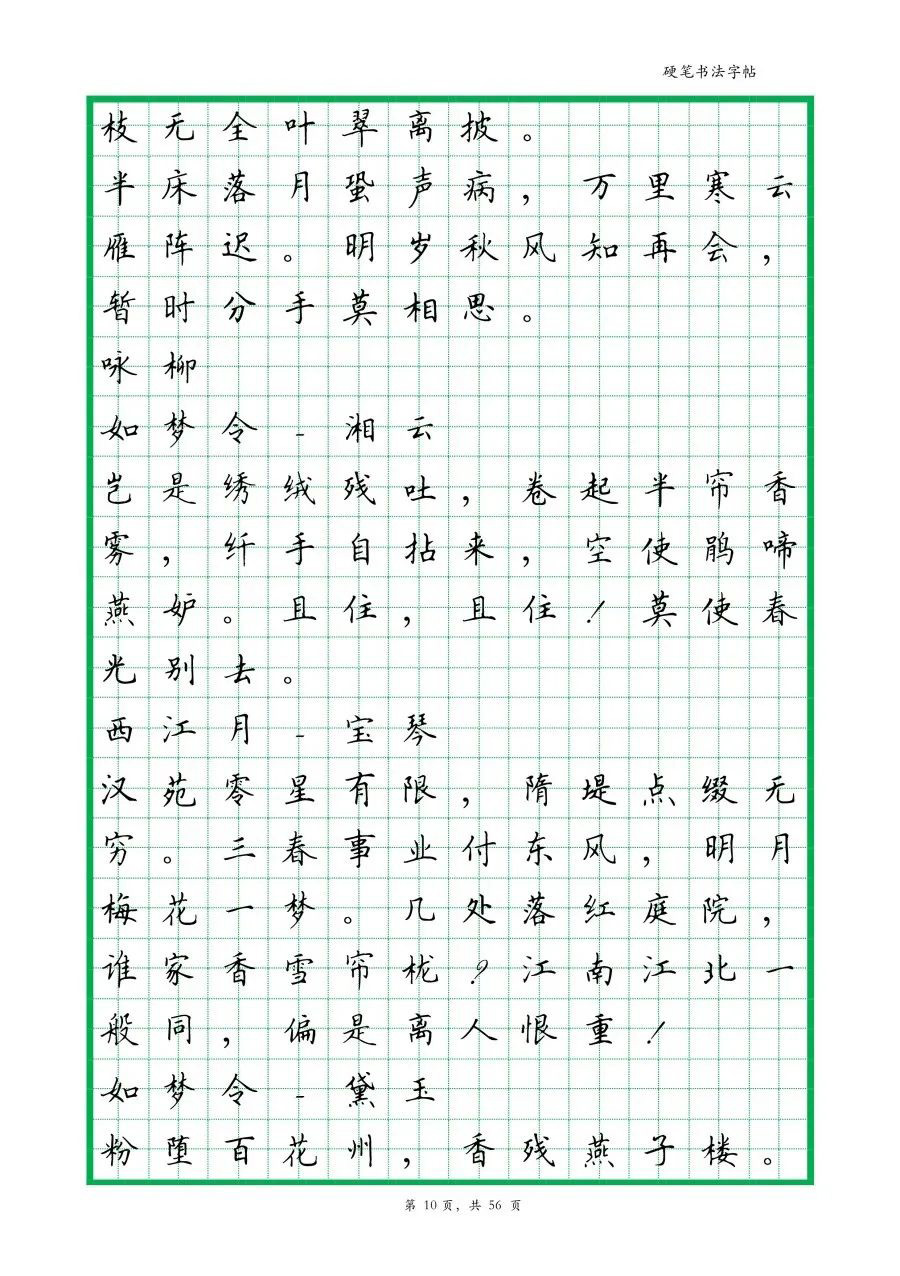 硬笔书法字帖
枝无全叶翠离披。
半床落月蛩声病，万里寒云
雁阵迟。明岁秋风知再会，
暂时分手莫相思。
咏柳
如梦令-湘云
岂是绣绒残吐，卷起半帘香
雾，纤手自拈来，空使鹃啼
燕妒。且住，且住！莫使春
光别去。
西江月-宝琴
汉苑零星有限，隋堤点缀无
穷。三春事业付东风，明月
梅花一梦。几处落红庭院，
谁家香雪帘栊？江南江北一
般同，偏是离人恨重！
如梦令-黛玉
粉堕百花州，香残燕子楼。
第 10 页，共 56 页